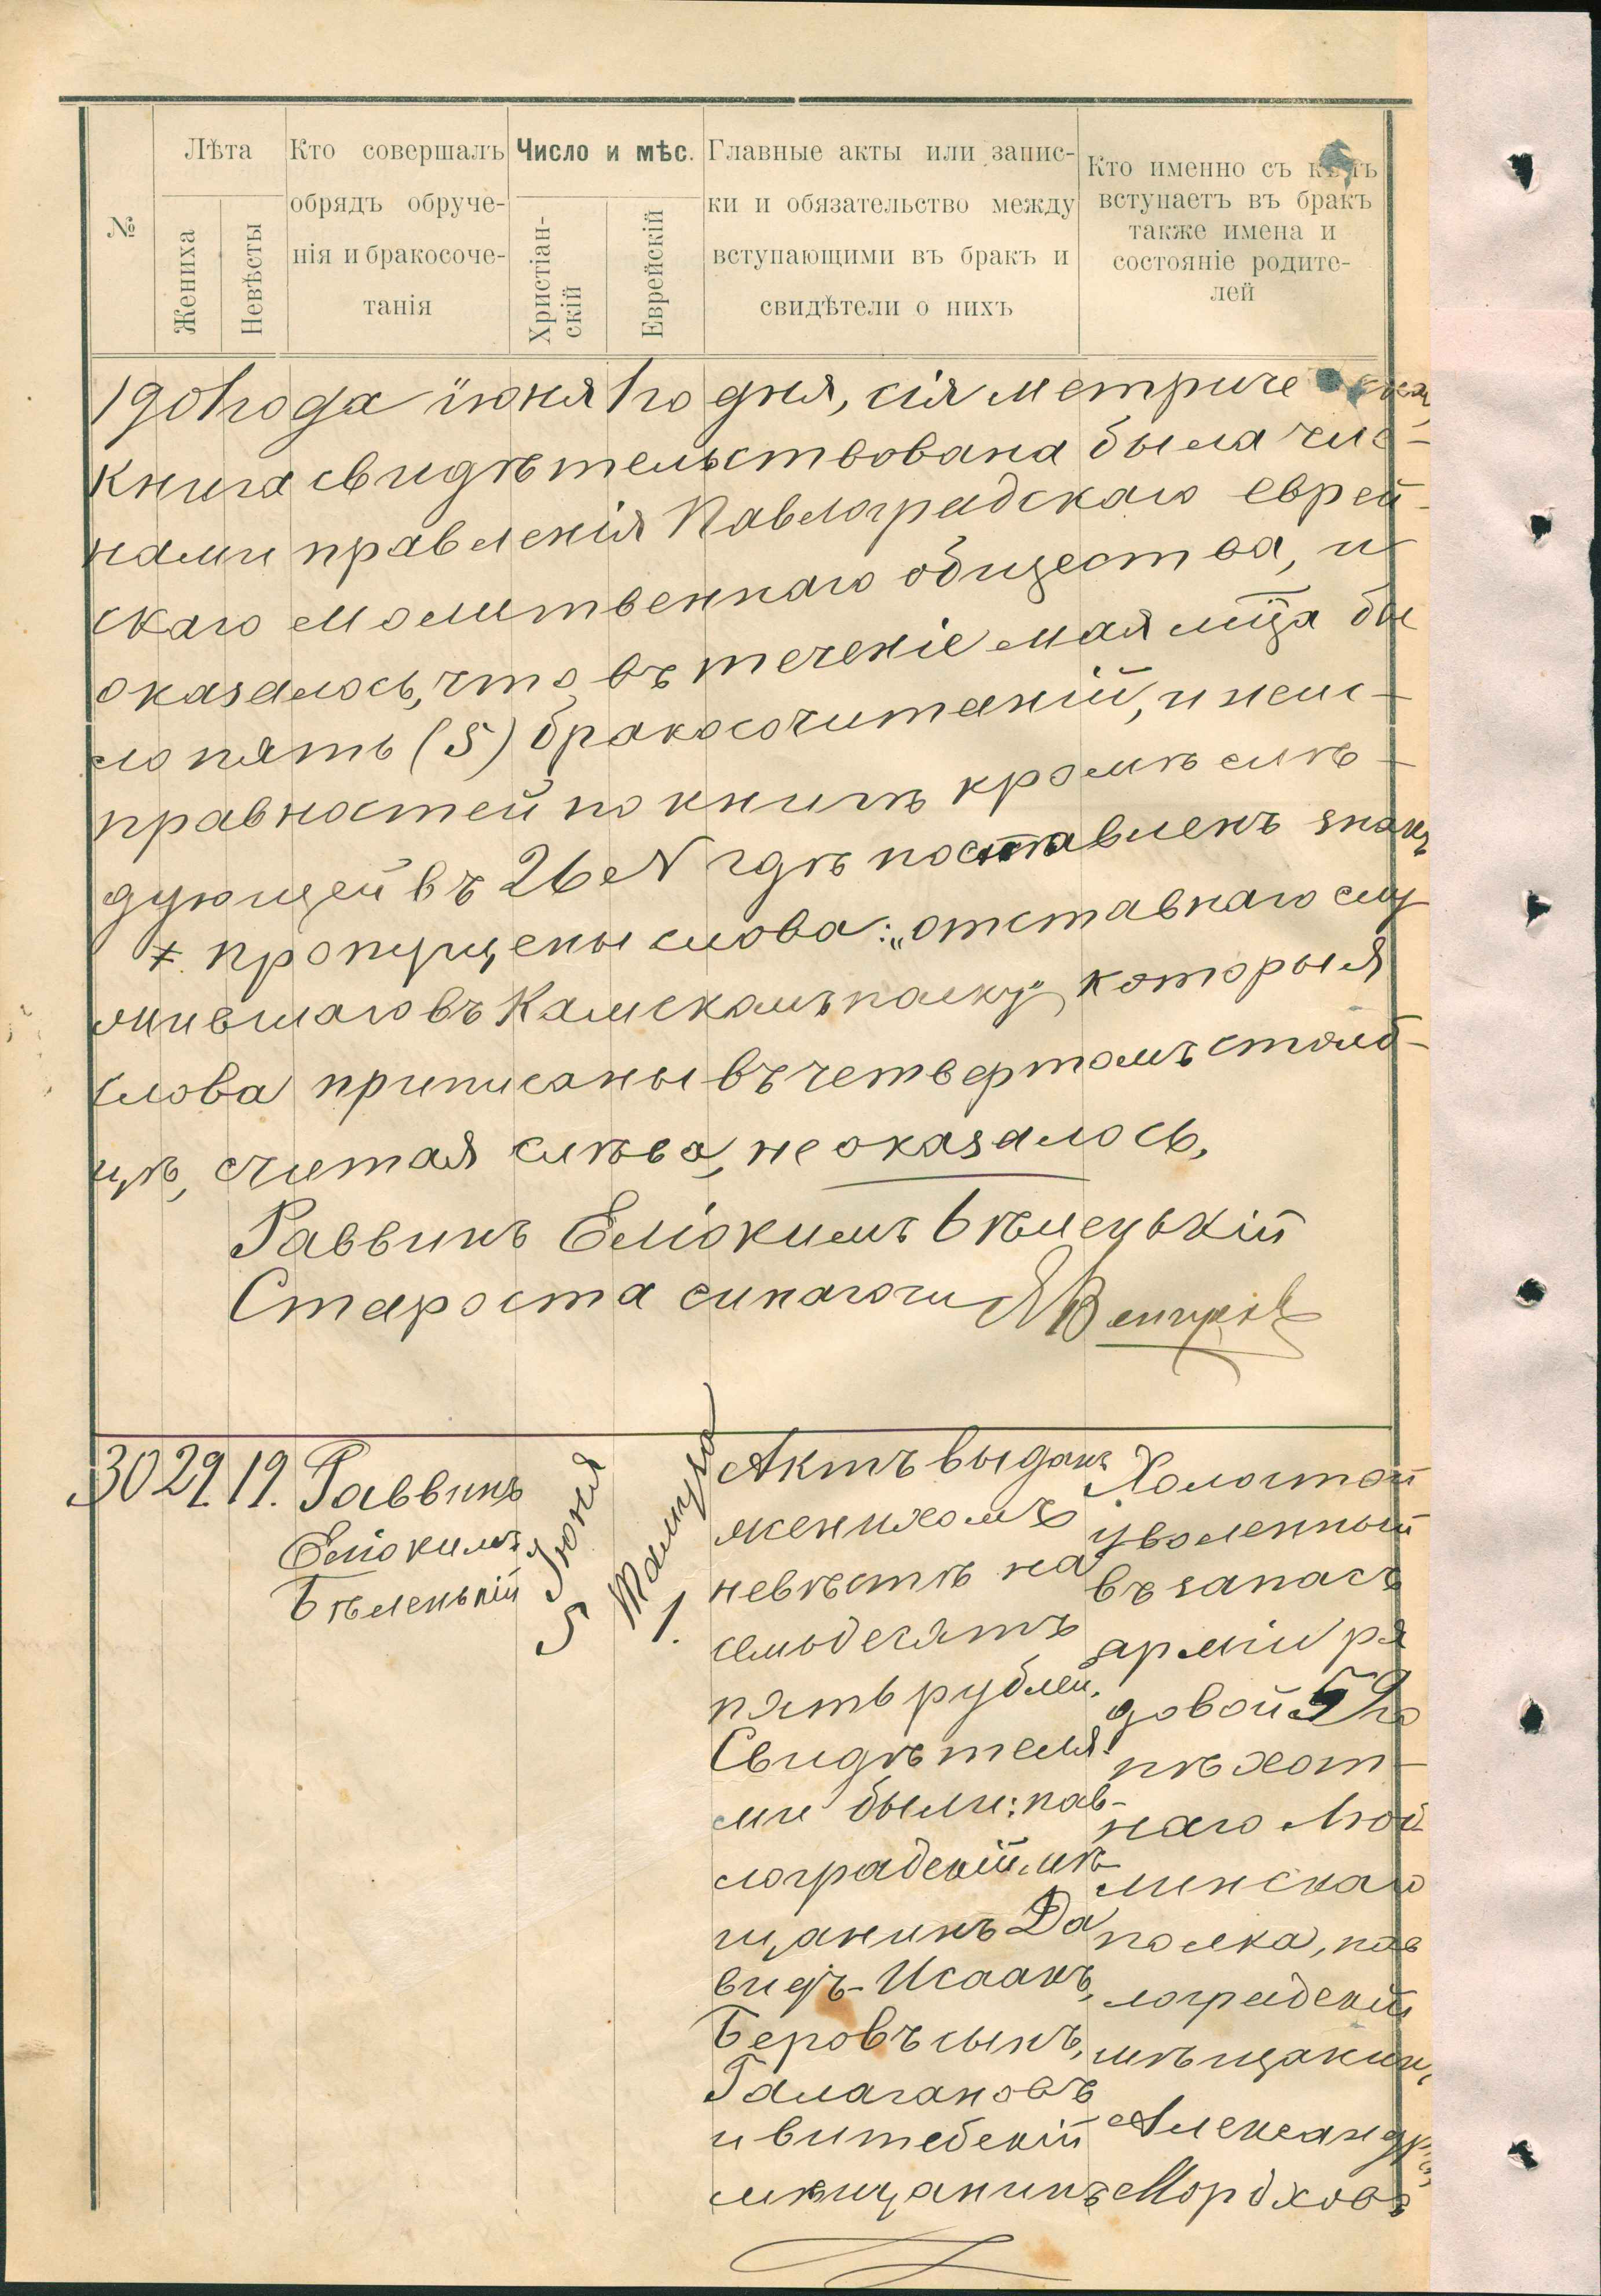 №
Лѣта
Жениха
Невѣсты
Кто совершалъ
обрядъ обруче-
нія и бракосоче-
танія
Число и мѣс.
Христіан-
скій
Еврейскій
Главные акты или запис-
ки и обязательство между
вступающими въ бракъ и
свидѣтели о нихъ
Кто именно съ кѣмъ
вступаетъ въ бракъ
также имена и
состояніе родите-
лей
1901 года іюня 1го дня, сія метрическая
книга свидѣтельствована была чле-
нами правленія Павлоградскаго еврей-
скаго молитвеннаго общества, и
оказалось, что въ теченіе мая мца бы
ло пять (5) бракосочитаній, и неис-
правностей по книгѣ кромѣ слѣ-
дующей въ 26 N гдѣ поставленъ знакъ
≠ пропущены слова: „отставнаго слу
жившаго въ Камскомъ полку" которыя
слова приписаны въ четвертомъ столб-
цѣ, считая слѣва, не оказалось.
Раввинъ Еліокимъ Бѣленькій
Староста синагоги
30 29. 19.
Раввинъ
Еліокимъ
Бѣленькій
5 Іюня
1. Тамуза
Актъ выданъ
женихомъ
невѣстѣ на
семьдесятъ
пять рублей.
Свидѣтеля-
ми были: пав-
лоградскій мѣ-
щанинъ Да
видъ-Исаакъ,
Беровъ сынъ,
Галагановъ
и витебскій
мѣщанинъ
Холостой
уволенный
въ запасъ
арміи ря
довой 59го
пѣхот-
наго Люб
линскаго
полка, пав
лоградскій
мѣщанинъ
Александръ
Мордховъ